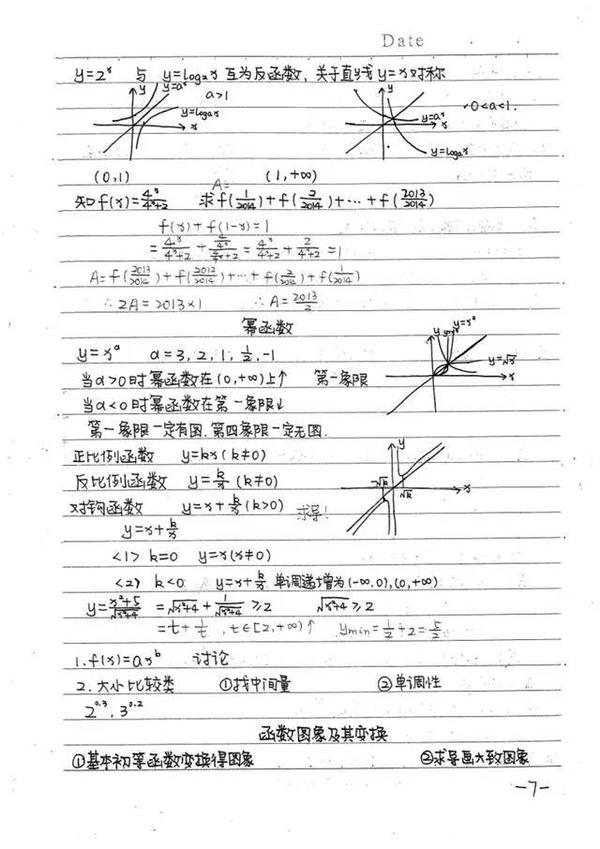 Date
y=2ˣ 与 y=log₂x 互为反函数, 关于直线 y=x 对称
y y=aˣ a>1 y=logₐx x
y 0<a<1. y=aˣ x y=logₐx
(0,1) (1,+∞)
知f(x)=4ˣ/(4ˣ+2) 求 A= f(1/2014)+f(2/2014)+⋯+f(2013/2014)
f(x)+f(1-x)=1
=4ˣ/(4ˣ+2)+(4/4ˣ)/(4/4ˣ+2)=4ˣ/(4ˣ+2)+2/(4ˣ+2)=1
A=f(2013/2014)+f(2012/2014)+⋯+f(2/2014)+f(1/2014)
∴2A=2013×1 ∴A=2013/2
幂函数
y=xᵃ a=3,2,1,1/2,-1
y y=x² y=√x x
当a>0时幂函数在(0,+∞)上↑ 第一象限
当a<0时幂函数在第一象限↓
第一象限一定有图.第四象限一定无图.
正比例函数 y=kx(k≠0)
反比例函数 y=k/x (k≠0)
对钩函数 y=x+k/x(k>0) 求导!
y -√k √k x
y=x+k/x
<1> k=0 y=x(x≠0)
<2> k<0 y=x+k/x 单调递增为(-∞,0),(0,+∞)
y=(x²+5)/√(x²+4) =√(x²+4)+1/√(x²+4)≥2 √(x²+4)≥2
=t+1/t, t∈[2,+∞)↑ ymin=1/2+2=5/2
1.f(x)=axᵇ 讨论
2.大小比较类 ①找中间量 ②单调性
2^0.3,3^0.2
函数图象及其变换
①基本初等函数变换得图象 ②求导画大致图象
-7-